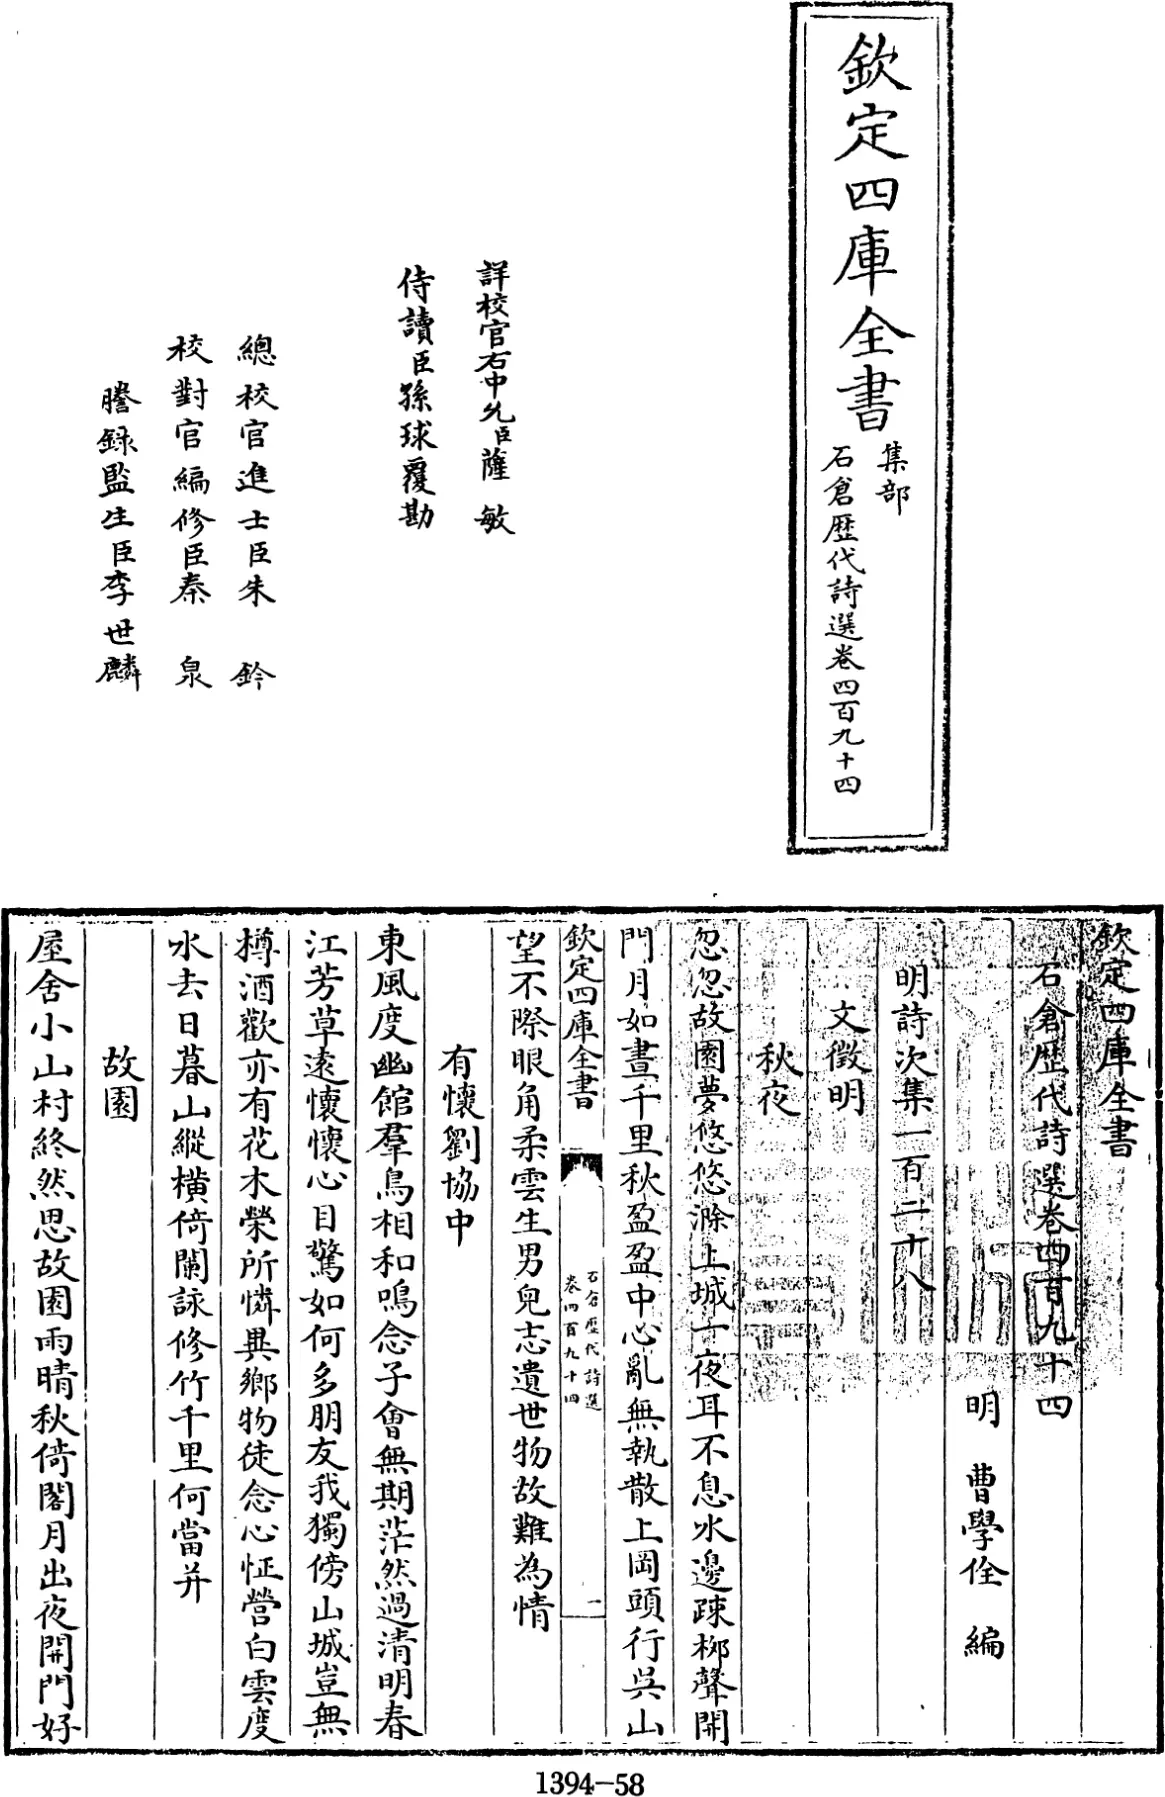 欽定四庫全書
集部
石倉歷代詩選卷四百九十四
詳校官右中允臣薩敏
侍讀臣孫球覆勘
總校官進士臣朱鈐
校對官編修臣秦泉
謄錄監生臣李世麟
欽定四庫全書
石倉歷代詩選卷四百九十四
明 曹學佺 編
明詩次集一百二十八
文徵明
秋夜
忽忽故園夢悠悠滁上城一夜耳不息水邊踈柳聲開
門月如晝千里秋盈盈中心亂無執散上岡頭行吳山
欽定四庫全書
石倉歷代詩選
卷四百九十四
一
望不際眼角柔雲生男兒志遺世物故難為情
有懷劉協中
東風度幽館羣鳥相和鳴念子會無期茫然過清明春
江芳草遠懷懷心目驚如何多朋友我獨傍山城豈無
樽酒歡亦有花木榮所憐異鄉物徒念心怔營白雲度
水去日暮山縱橫倚闌詠修竹千里何當并
故園
屋舍小山村終然思故園雨晴秋倚閣月出夜開門好
1394-58